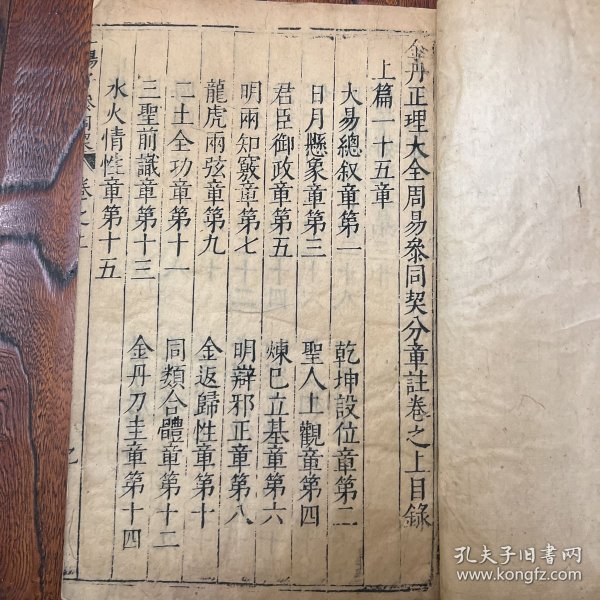 金丹正理大全周易叅同契分章註卷之上目錄
上篇一十五章
大易總叙章第一
乾坤設位章第二
日月懸象章第三
聖人上觀章第四
君臣御政章第五
煉已立基章第六
明兩知竅章第七
明辯邪正章第八
龍虎兩弦章第九
金返歸性章第十
二土全功章第十一
同類合體章第十二
三聖前識章第十三
金丹刀圭章第十四
水火情性章第十五
孔夫子旧书网
www.kongfz.com